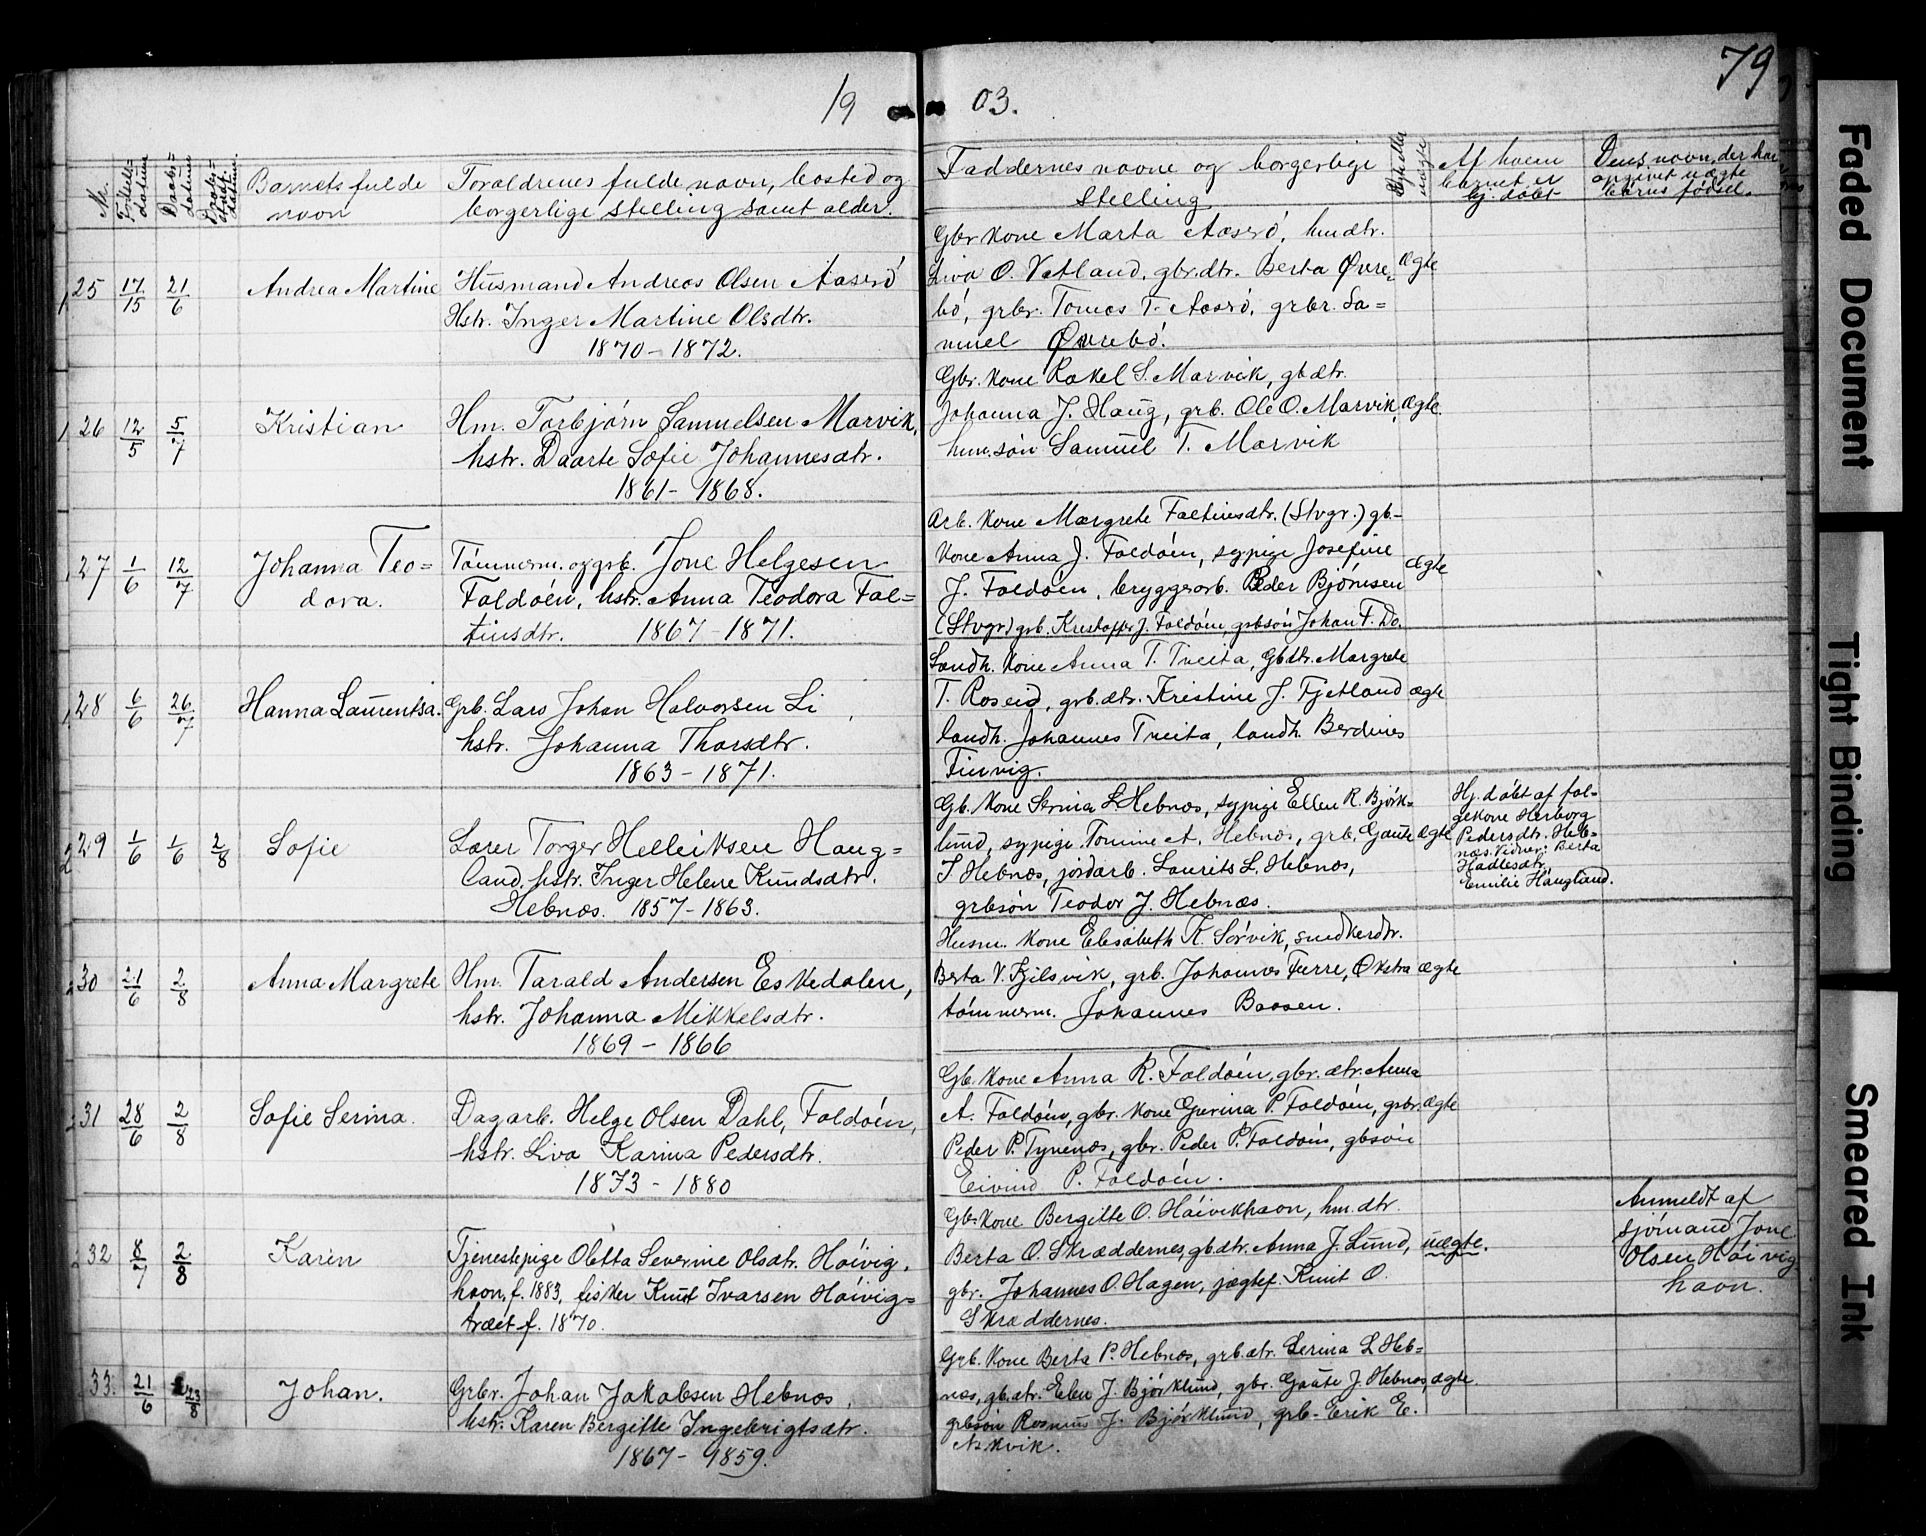 79
19 03.
Nr.
Fødsels-
datum
Daabs-
datum
Barnets fulde
navn
Foraldrenes fulde navn, bosted og
borgerlige stelling samt alder.
Faddernes navne og borgerlige
Stelling
Af hvem
barnet er
hj. døbt
Dens navn, der har
angivet uægte
barns fødsel.
25 17/15 21/6 Andrea Martine
Husmand Andreas Olsen Aaserø
Hstr. Inger Martine Olsdtr.
1870 - 1872.
Gbr kone Marta Aaserø, hmdtr.
Liva O. Vatland, gbr.dtr. Berta Øvre-
bø, grbr. Tomas T. Aaserø, grbr. Sa-
muel Øvrebø.
ægte
26 12/5 5/7 Kristian
Hm. Torbjørn Samuelsen Marvik,
hstr. Daarte Sofie Johannesdtr.
1861 - 1868.
Gbr. kone Rakel S. Marvik, gbdtr.
Johanna J. Haug, grb. Ole O. Marvik,
hm.søn Samuel T. Marvik
ægte.
27 1/6 12/7 Johanna Teo-
dora.
Tømmerm. og grb. Jone Helgesen
Foldøen, hstr. Anna Teodora Fal-
tinsdtr. 1867 - 1871.
Arb. kone Margrete Faltinsdtr. (Stvgr.) gb-
kone Anna J. Foldøen, sypige Josefine
J. Foldøen, bryggearb. Peder Bjørnsen
(Stvgr) grb. Kristoffer J. Foldøen, grbsøn Johan F. Do.
ægte
28 6/6 26/7 Hanna Laurentsa.
Grb. Lars Johan Halvorsen Li
hstr. Johanna Thorsdtr.
1863 - 1871.
Landh. kone Anna T. Tveita, Gbdtr. Margrete
T. Roseid, grb.dtr. Kristine J. Fjetland
landh. Johannes Tveita, landh. Berdines
Finvig.
ægte
29 1/6 1/6 2/8 Sofie
Lærer Torger Helleiksen Haug-
land, hstr. Inger Helene Knudsdtr.
Hebnæs. 1857 - 1863.
Gb. kone Serina L Hebnæs, sypige Ellen R. Bjørk-
lund, sypige Tomine A. Hebnæs, grb. Gaute
J Hebnæs, jordarb. Laurits L. Hebnæs,
grbsøn Teodor J. Hebnæs.
ægte
Hj. døbt af fol-
gekone Herborg
Pedersdtr. Heb-
næs. Vidner: Berta
Hadlesdtr.
Emilie Haugland.
30 21/6 2/8 Anna Margrete
Hm. Tarald Andersen Eskedalen,
hstr. Johanna Mikkelsdtr.
1869 - 1866
Husm. kone Elisabeth K. Sørvik, snedkerdtr.
Berta V. Kjilsvik, grb. Johannes Førre, Økstra
tømmerm. Johannes Baasen.
ægte
31 28/6 2/8 Sofie Serina.
Dagarb. Helge Olsen Dahl, Foldøen,
hstr. Liva Karina Pedersdtr.
1873 - 1880
Gb. kone Anna R. Foldøen, gbr. dtr. Anna
A. Foldøen, gbr. kone Gurina P. Foldøen, grbr.
Peder P. Tynenæs, gbr. Peder P. Foldøen, gbsøn
Eivind P. Foldøen.
ægte
32 8/7 2/8 Karen
Tjenestepige Oletta Severine Olsdtr. Høivig,
havn, f. 1883, fisker Knut Ivarsen Høivig-
træet f. 1870.
Gb. kone Bergitte O. Høivikhavn, hm. dtr.
Berta O. Skræddernes, gb.dtr. Anna J. Lund,
gbr. Johannes O. Hagen, jægtef. Knut O.
Skræddernes.
uægte.
Anmeldt af
sjømand Jone
Olsen Høivig
havn.
33. 21/6 23/8 Johan.
Grbr. Johan Jakobsen Hebnæs,
hstr. Karen Bergitte Ingebrigtsdtr.
1867 - 1859.
Grb. kone Berta P. Hebnæs, grb.dtr. Serina L Heb-
næs, gb.dtr. Elen J. Bjørklund, gbr. Gaute J. Hebnæs,
grbsøn Rasmus J. Bjørklund, grb. Erik E.
Askvik.
ægte
Faded Document
Tight Binding
Smeared Ink